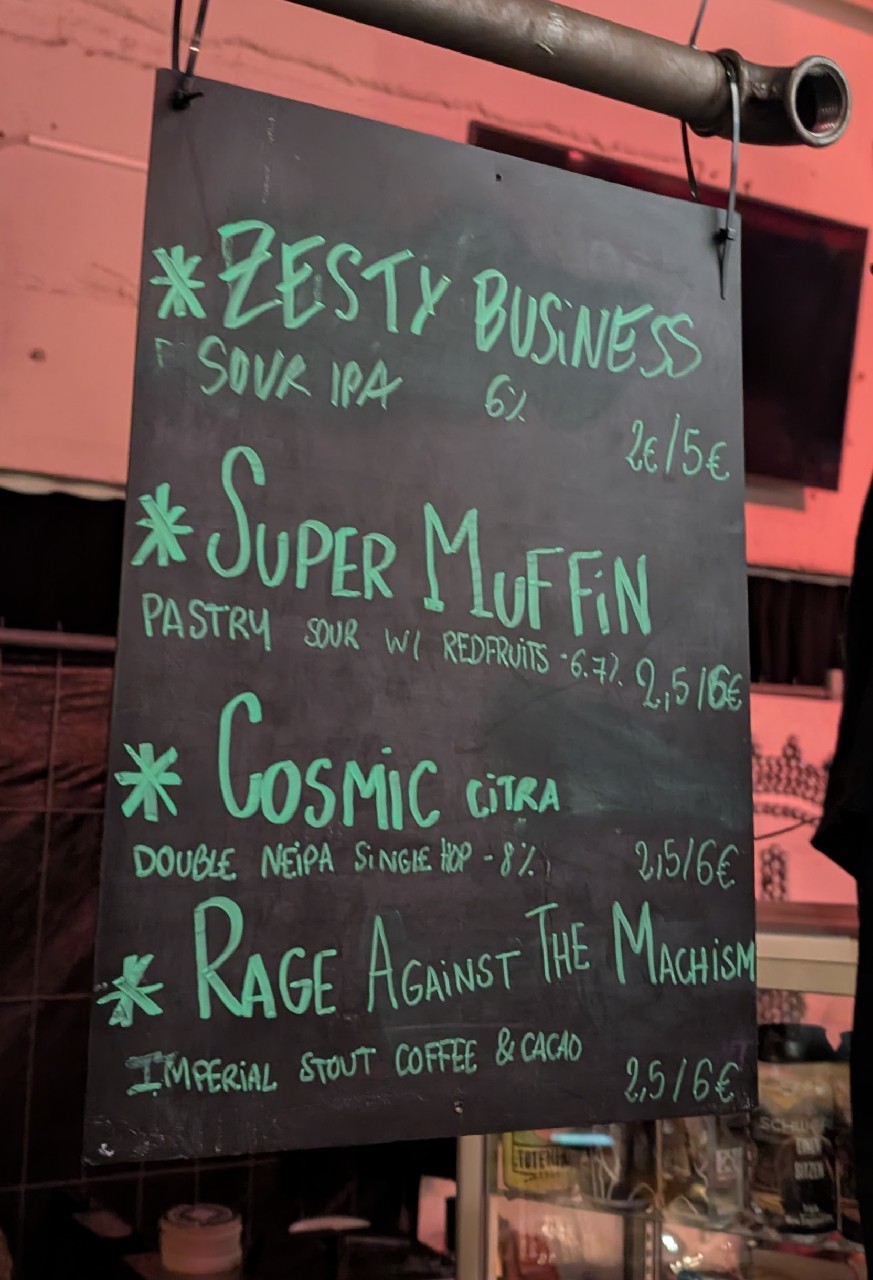 * ZESTY BUSINESS
SOUR IPA 6%
2€/5€
* SUPER MUFFIN
PASTRY SOUR W/ REDFRUITS - 6.7%. 2,5/6€
* COSMIC CITRA
DOUBLE NEIPA SINGLE HOP - 8% 2,5/6€
* RAGE AGAINST THE MACHISM
IMPERIAL STOUT COFFEE & CACAO
2,5/6€